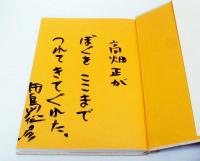 高畑正が
ぼくを ここまで
つれてきてくれた。